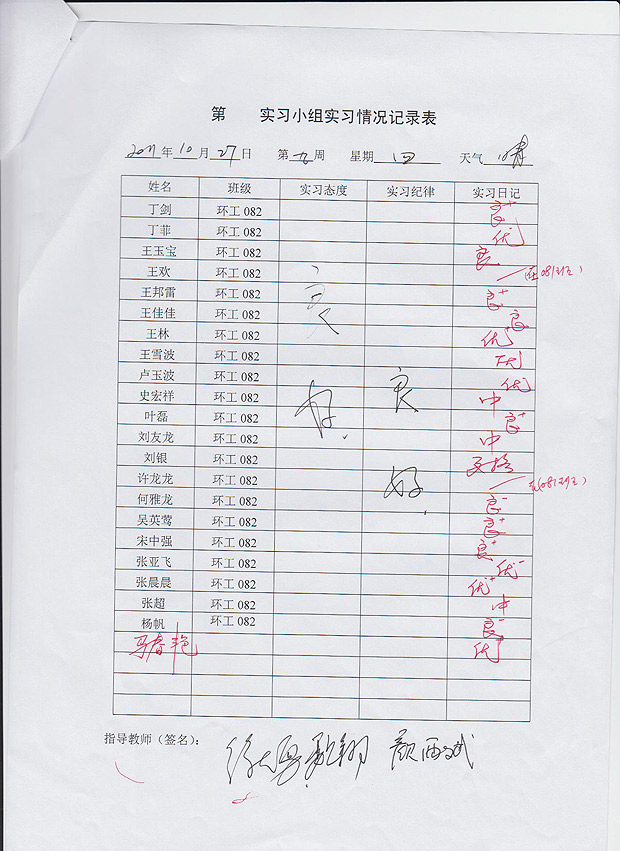 第 实习小组实习情况记录表
2011年10月27日 第九周 星期 四 天气 晴
姓名 班级 实习态度 实习纪律 实习日记
丁剑 环工 082 良+
丁菲 环工 082 优
王玉宝 环工 082 良
王欢 环工 082
王邦雷 环工 082 良+
王佳佳 环工 082 良
王林 环工 082 优
王雪波 环工 082 优
卢玉波 环工 082 优
史宏祥 环工 082 中
叶磊 环工 082 良+
刘友龙 环工 082 中
刘银 环工 082
许龙龙 环工 082
何雅龙 环工 082 良-
吴英莺 环工 082 良+
宋中强 环工 082 良+
张亚飞 环工 082 优-
张晨晨 环工 082 优+
张超 环工 082 中
杨帆 环工 082 良-
马春艳 优
良
好
良
好
指导教师（签名）：